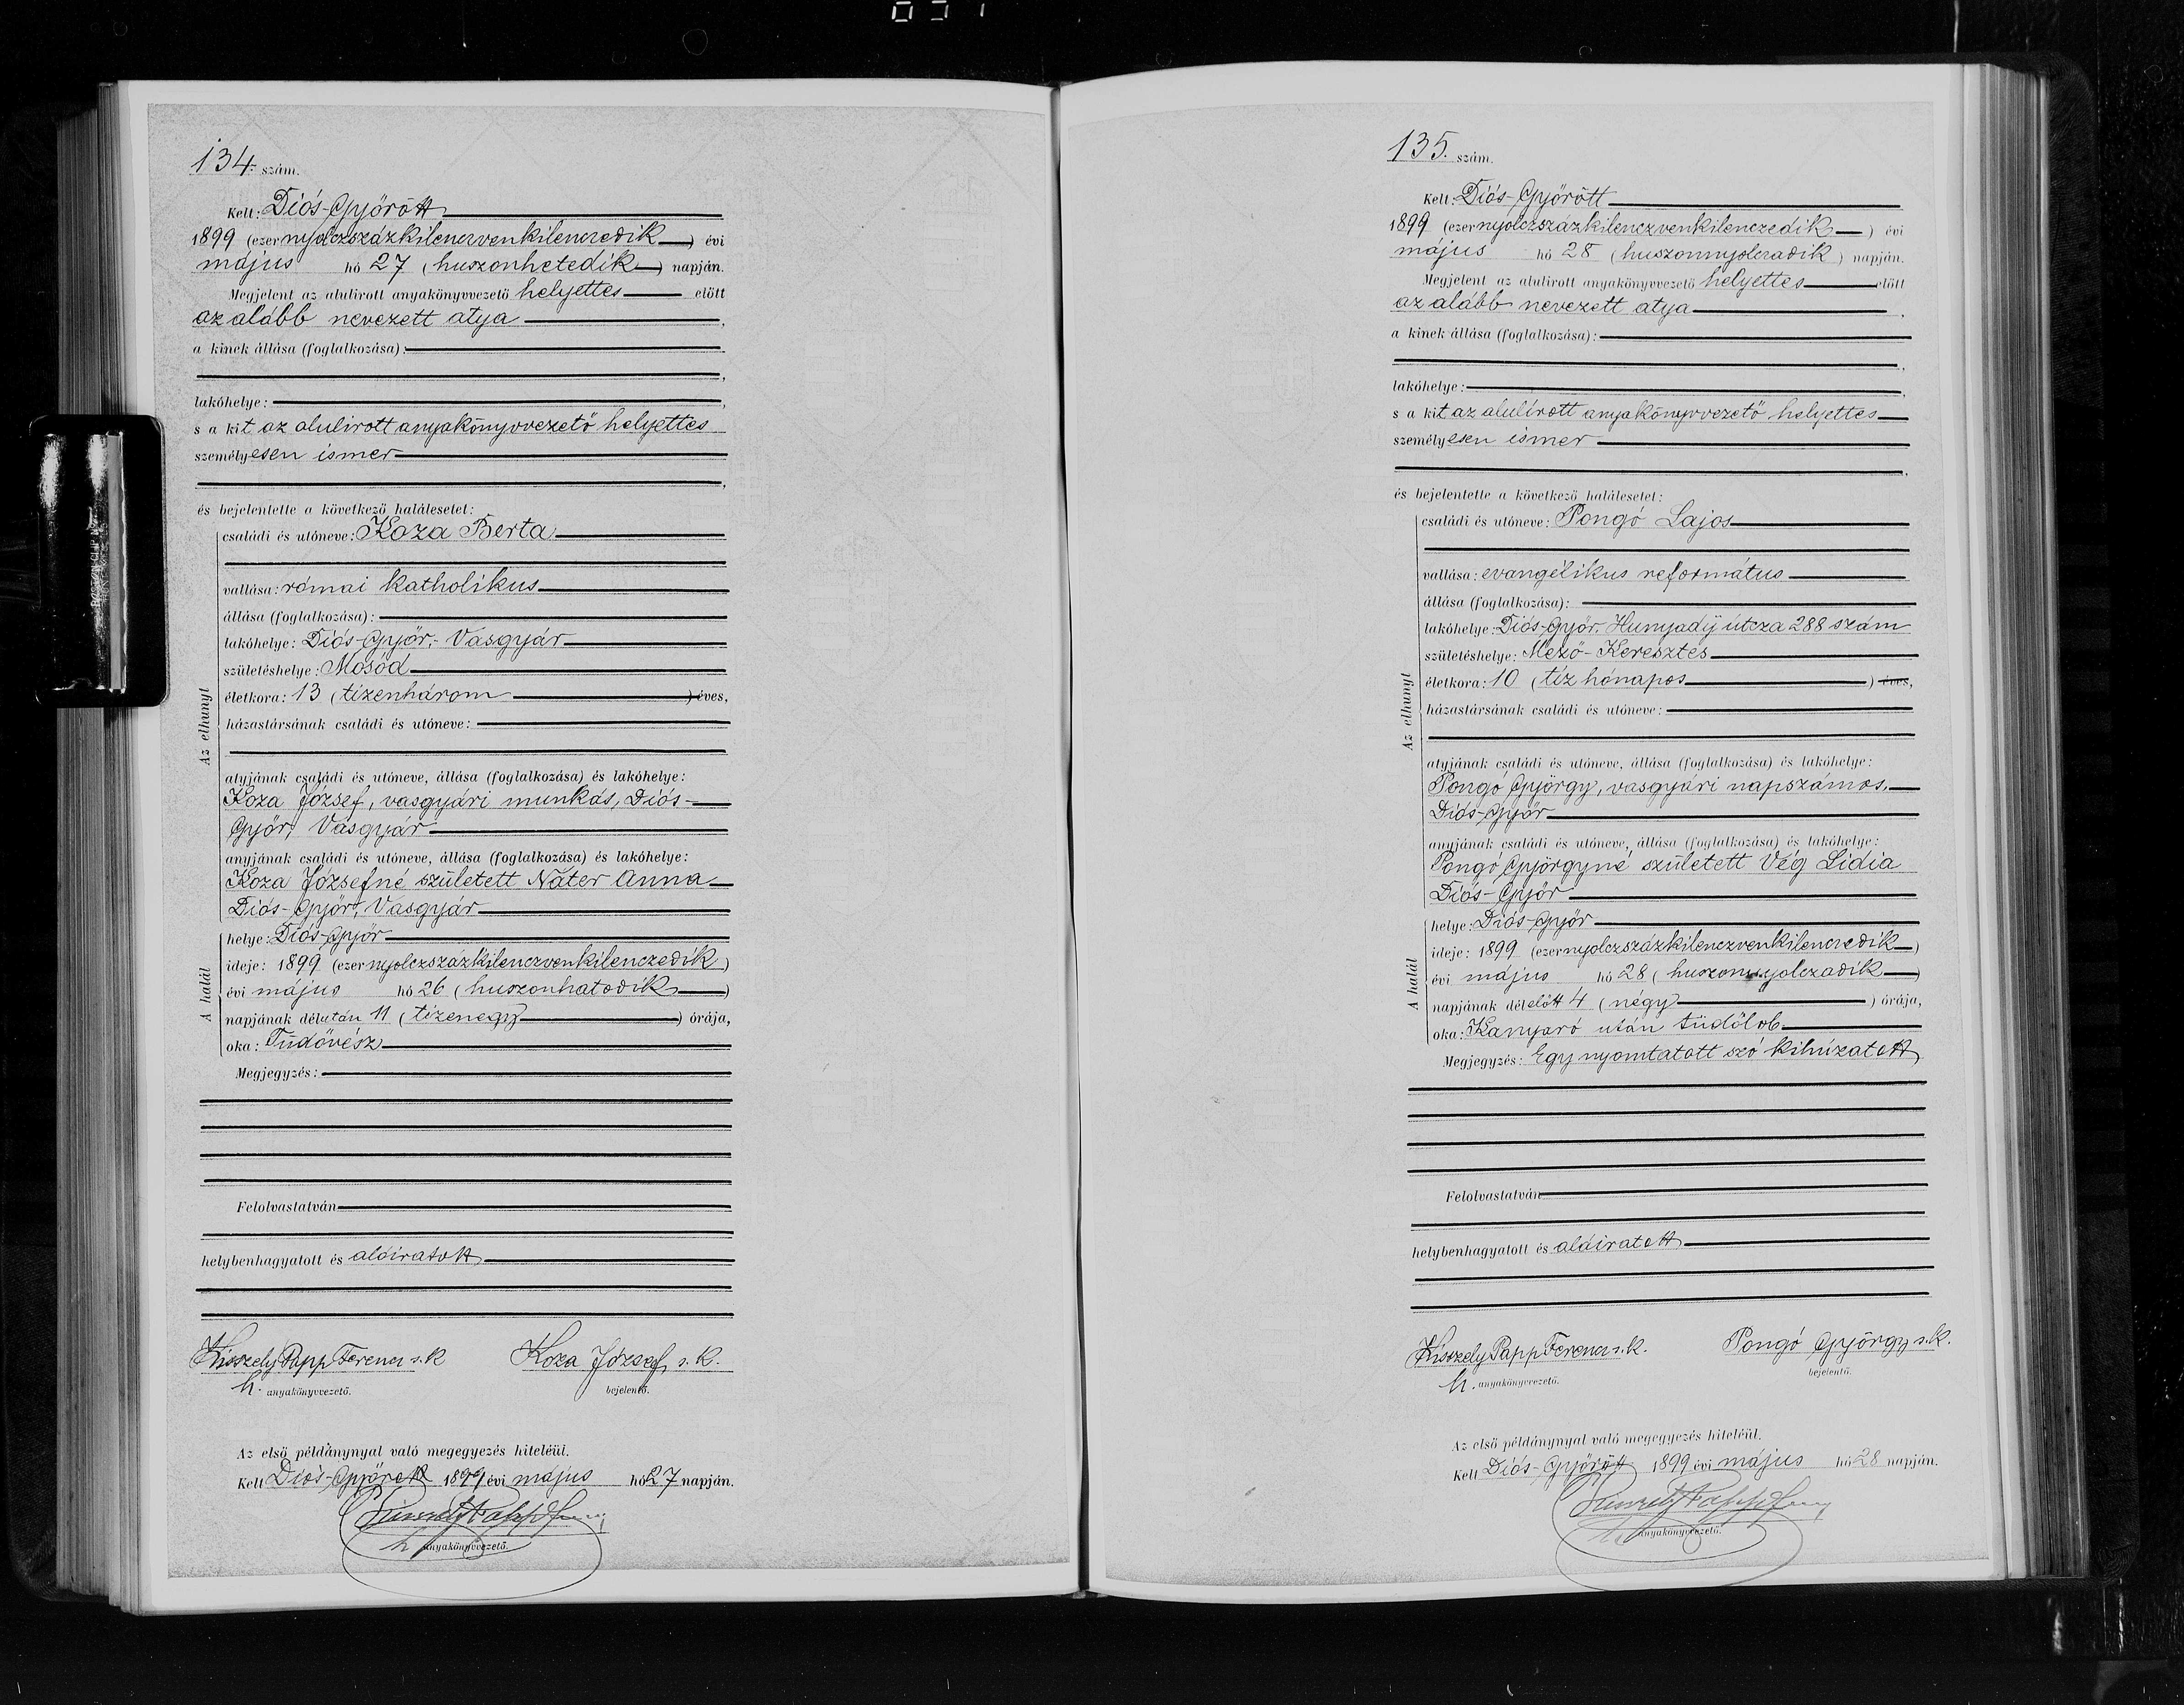 134. szám.
Kelt: Diós-Győrött
1899 (ezernyolczszázkilenczvenkilenczedik) évi
május hó 27 (huszonhetedik) napján.
Megjelent az alulirott anyakönyvvezető helyettes előtt
az alább nevezett atya,
a kinek állása (foglalkozása):
lakóhelye:
s a kit az alulirott anyakönyvvezető helyettes
személyesen ismer
és bejelentette a következő halálesetet:
Az elhunyt
családi és utóneve: Koza Berta
vallása: római katholikus
állása (foglalkozása):
lakóhelye: Diós-Győr, Vasgyár
születéshelye: Mosód
életkora: 13 (tizenhárom) éves,
házastársának családi és utóneve:
atyjának családi és utóneve, állása (foglalkozása) és lakóhelye:
Koza József, vasgyári munkás, Diós-
Győr, Vasgyár
anyjának családi és utóneve, állása (foglalkozása) és lakóhelye:
Koza Józsefné született Náter Anna
Diós-Győr, Vasgyár
A halál
helye: Diós-Győr
ideje: 1899 (ezernyolczszázkilenczvenkilenczedik)
évi május hó 26 (huszonhatodik)
napjának délután 11 (tizenegy) órája,
oka: Tüdővész
Megjegyzés:
Felolvastatván
helybenhagyatott és aláiratott
Kisszely Papp Ferencz s. k. Koza József, s. k.
h. anyakönyvvezető. bejelentő.
Az első példánynyal való megegyezés hiteléül.
Kelt Diós-Győrött 1899 évi május hó 27 napján.
h. anyakönyvvezető.
135. szám.
Kelt: Diós-Győrött
1899 (ezernyolczszázkilenczvenkilenczedik) évi
május hó 28 (huszonnyolczadik) napján.
Megjelent az alulirott anyakönyvvezető helyettes előtt
az alább nevezett atya,
a kinek állása (foglalkozása):
lakóhelye:
s a kit az alulírott anyakönyvvezető helyettes
személyesen ismer
és bejelentette a következő halálesetet:
Az elhunyt
családi és utóneve: Pongó Lajos
vallása: evangélikus református
állása (foglalkozása):
lakóhelye: Diós-Győr, Hunyadÿ útcza 288 szám
születéshelye: Mező-Keresztes
életkora: 10 (tíz hónapos) éves,
házastársának családi és utóneve:
atyjának családi és utóneve, állása (foglalkozása) és lakóhelye:
Pongó György, vasgyári napszámos,
Diós-Győr
anyjának családi és utóneve, állása (foglalkozása) és lakóhelye:
Pongó Györgyné született Vég Lidia
Diós-Győr
A halál
helye: Diós-Győr
ideje: 1899 (ezernyolczszázkilenczvenkilenczedik)
évi május hó 28 (huszonnyolczadik)
napjának délelőtt 4 (négy) órája,
oka: Kanyaró után tüdőlob
Megjegyzés: Egy nyomtatott szó kihúzatott
Felolvastatván
helybenhagyatott és aláiratott
Kisszely Papp Ferencz s. k. Pongó György s. k.
h. anyakönyvvezető. bejelentő.
Az első példánynyal való megegyezés hiteléül.
Kelt Diós-Győrött 1899 évi május hó 28 napján.
h. anyakönyvvezető.